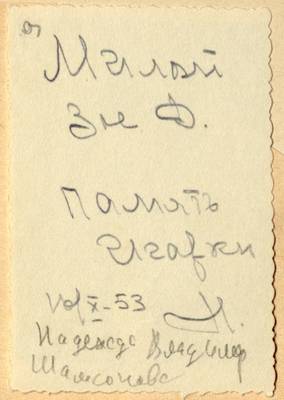 Милой
Зне Д.
память
Игарки
10/X-53 Н.
Надежда Владимир
Шамсонова